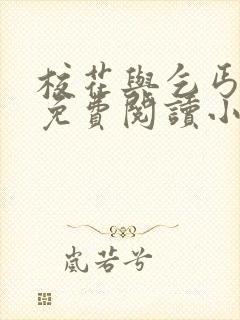 校花與乞丐
免費閱讀小
嵐若兮